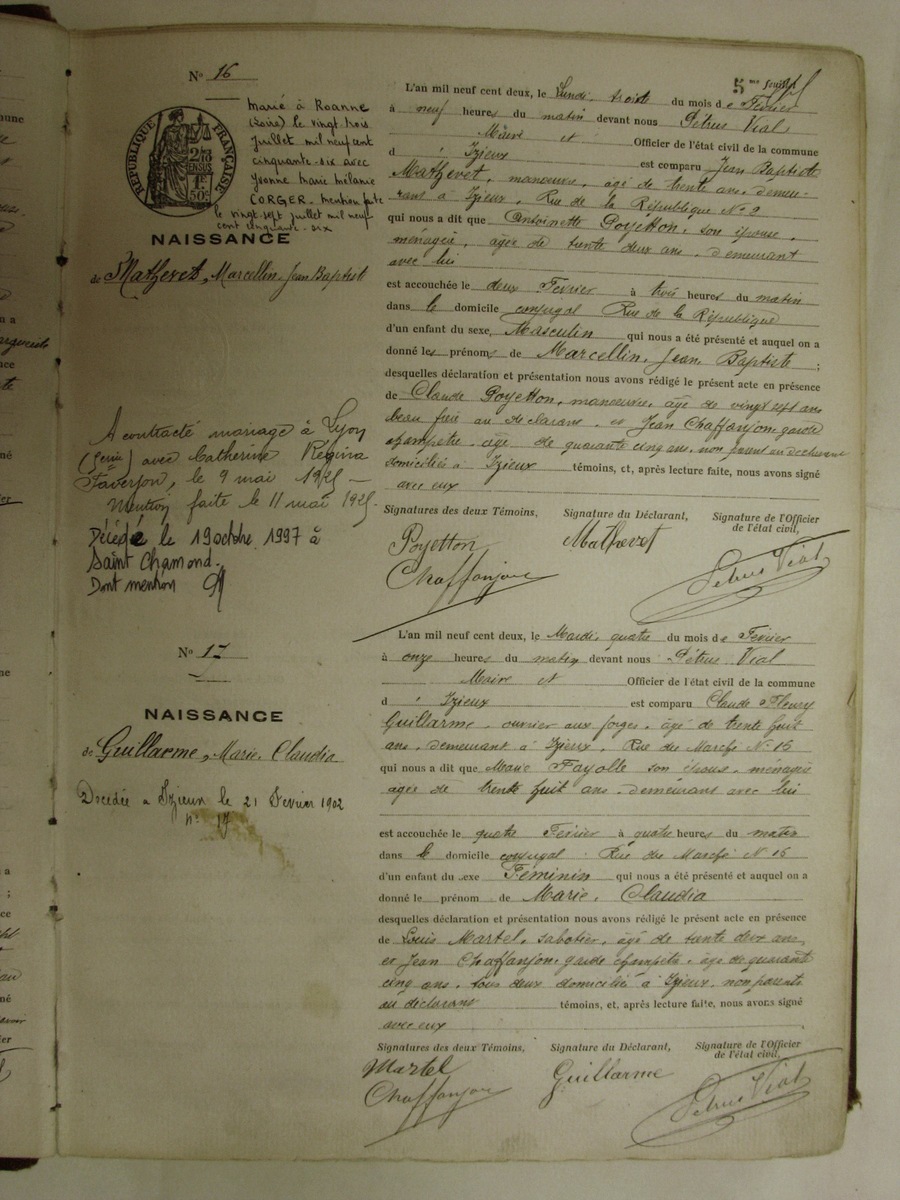 5me feuillet
N° 16
RÉPUBLIQUE FRANÇAISE
2/10 EN SUS
1F 50c
marié à Roanne
(Loire) le vingt trois
juillet mil neuf cent
cinquante-six avec
Yvonne Marie Mélanie
CORGER. mention faite
le vingt-sept juillet mil neuf
cent cinquante-six
NAISSANCE
de Mathevet, Marcellin, Jean Baptiste
A contracté mariage à Lyon
avec Catherine Régina
Faverjon, le 9 mai 1925 —
Mention faite le 11 mai 1925.
Décédé le 19 octobre 1997 à
Saint Chamond.
Dont mention
L'an mil neuf cent deux, le Lundi, trois du mois de Février
à neuf heures du matin devant nous Pétrus Vial,
Maire et Officier de l'état civil de la commune
d' Izieux est comparu Jean Baptiste
Mathevet, manoeuvre, âgé de trente ans, demeu-
rant à Izieux, Rue de la République N° 2
qui nous a dit que Antoinette Poyetton, son épouse,
ménagère, âgée de trente deux ans, demeurant
avec lui
est accouchée le deux Février à trois heures du matin
dans le domicile conjugal Rue de la République
d'un enfant du sexe, Masculin qui nous a été présenté et auquel on a
donné les prénoms de Marcellin, Jean Baptiste ;
desquelles déclaration et présentation nous avons rédigé le présent acte en présence
de Claude Poyetton, manoeuvre, âgé de vingt sept ans
beau frère au déclarant, et Jean Chaffanjon, garde
champêtre, âgé de quarante cinq ans, non parent au déclarant
domiciliés à Izieux témoins, et, après lecture faite, nous avons signé
avec eux
Signatures des deux Témoins, Signature du Déclarant, Signature de l'Officier
de l'état civil,
Poyetton Mathevet
Chaffanjon Pétrus Vial
N° 17
NAISSANCE
de Guillarme, Marie, Claudia
Décédée à Izieux le 21 Février 1902
n° 17
L'an mil neuf cent deux, le Mardi, quatre du mois de Février
à onze heures du matin devant nous Pétrus Vial
Maire et Officier de l'état civil de la commune
d' Izieux est comparu Claude Fleury
Guillarme, ouvrier aux forges, âgé de trente huit
ans, demeurant à Izieux, Rue du Marché N° 16
qui nous a dit que Marie Fayolle son épouse, ménagère
âgée de trente huit ans, demeurant avec lui
est accouchée le quatre Février à quatre heures du matin
dans le domicile conjugal Rue du Marché N° 16
d'un enfant du sexe Féminin qui nous a été présenté et auquel on a
donné le prénom de Marie, Claudia
desquelles déclaration et présentation nous avons rédigé le présent acte en présence
de Louis Martel, sabotier, âgé de trente deux ans,
et Jean Chaffanjon, garde champêtre, âgé de quarante
cinq ans, tous deux domiciliés à Izieux, non parents
au déclarant témoins, et, après lecture faite, nous avons signé
avec eux
Signatures des deux Témoins, Signature du Déclarant, Signature de l'Officier
de l'état civil,
Martel Guillarme
Chaffanjon Pétrus Vial